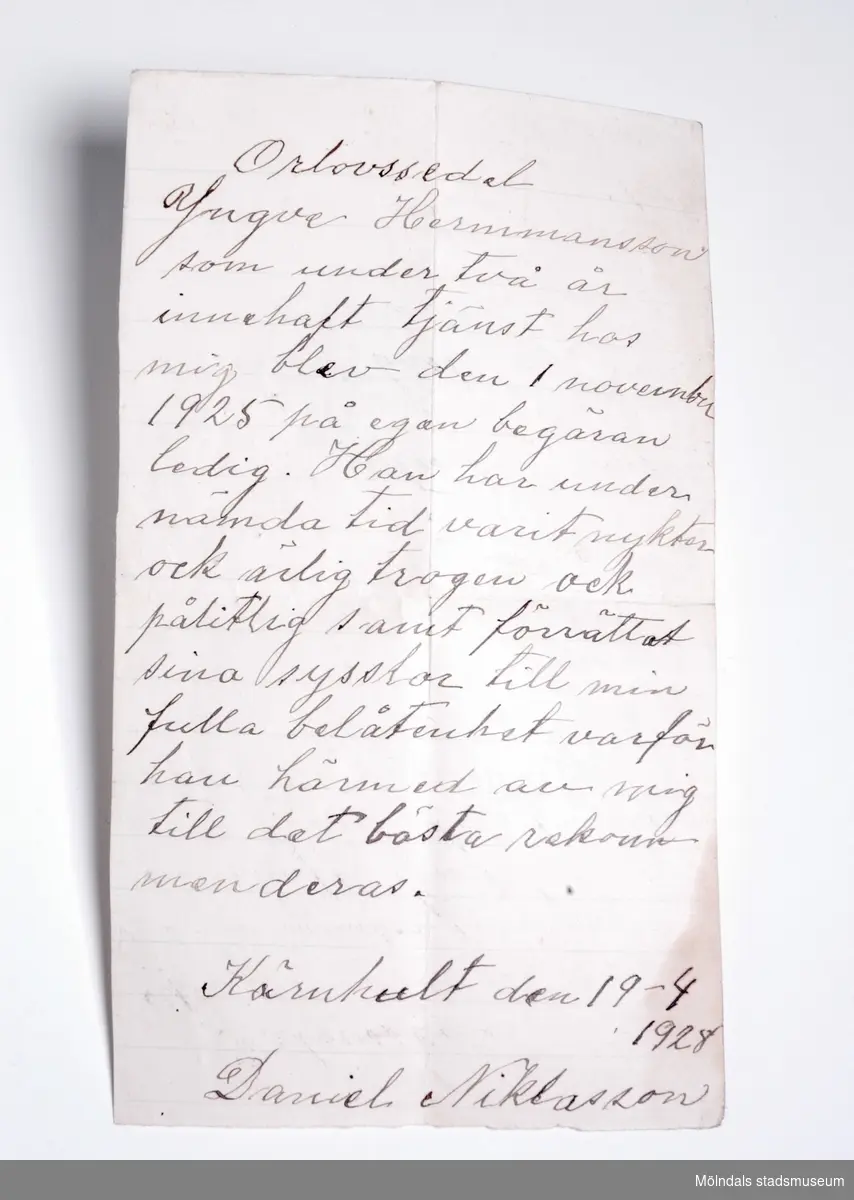 Orlovssedel
Yngve Hermmansson
som under två år
innehaft tjänst hos
mig blev den 1 november
1925 på egen begäran
ledig. Han har under
nämda tid varit nykter
ock ärlig trogen ock
pålitlig samt förrättat
sina sysslor till min
fulla belåtenhet varför
han härmed av mig
till det bästa rekom
menderas.
Kärnhult den 19-4
1928
Daniel Niklasson
Mölndals stadsmuseum